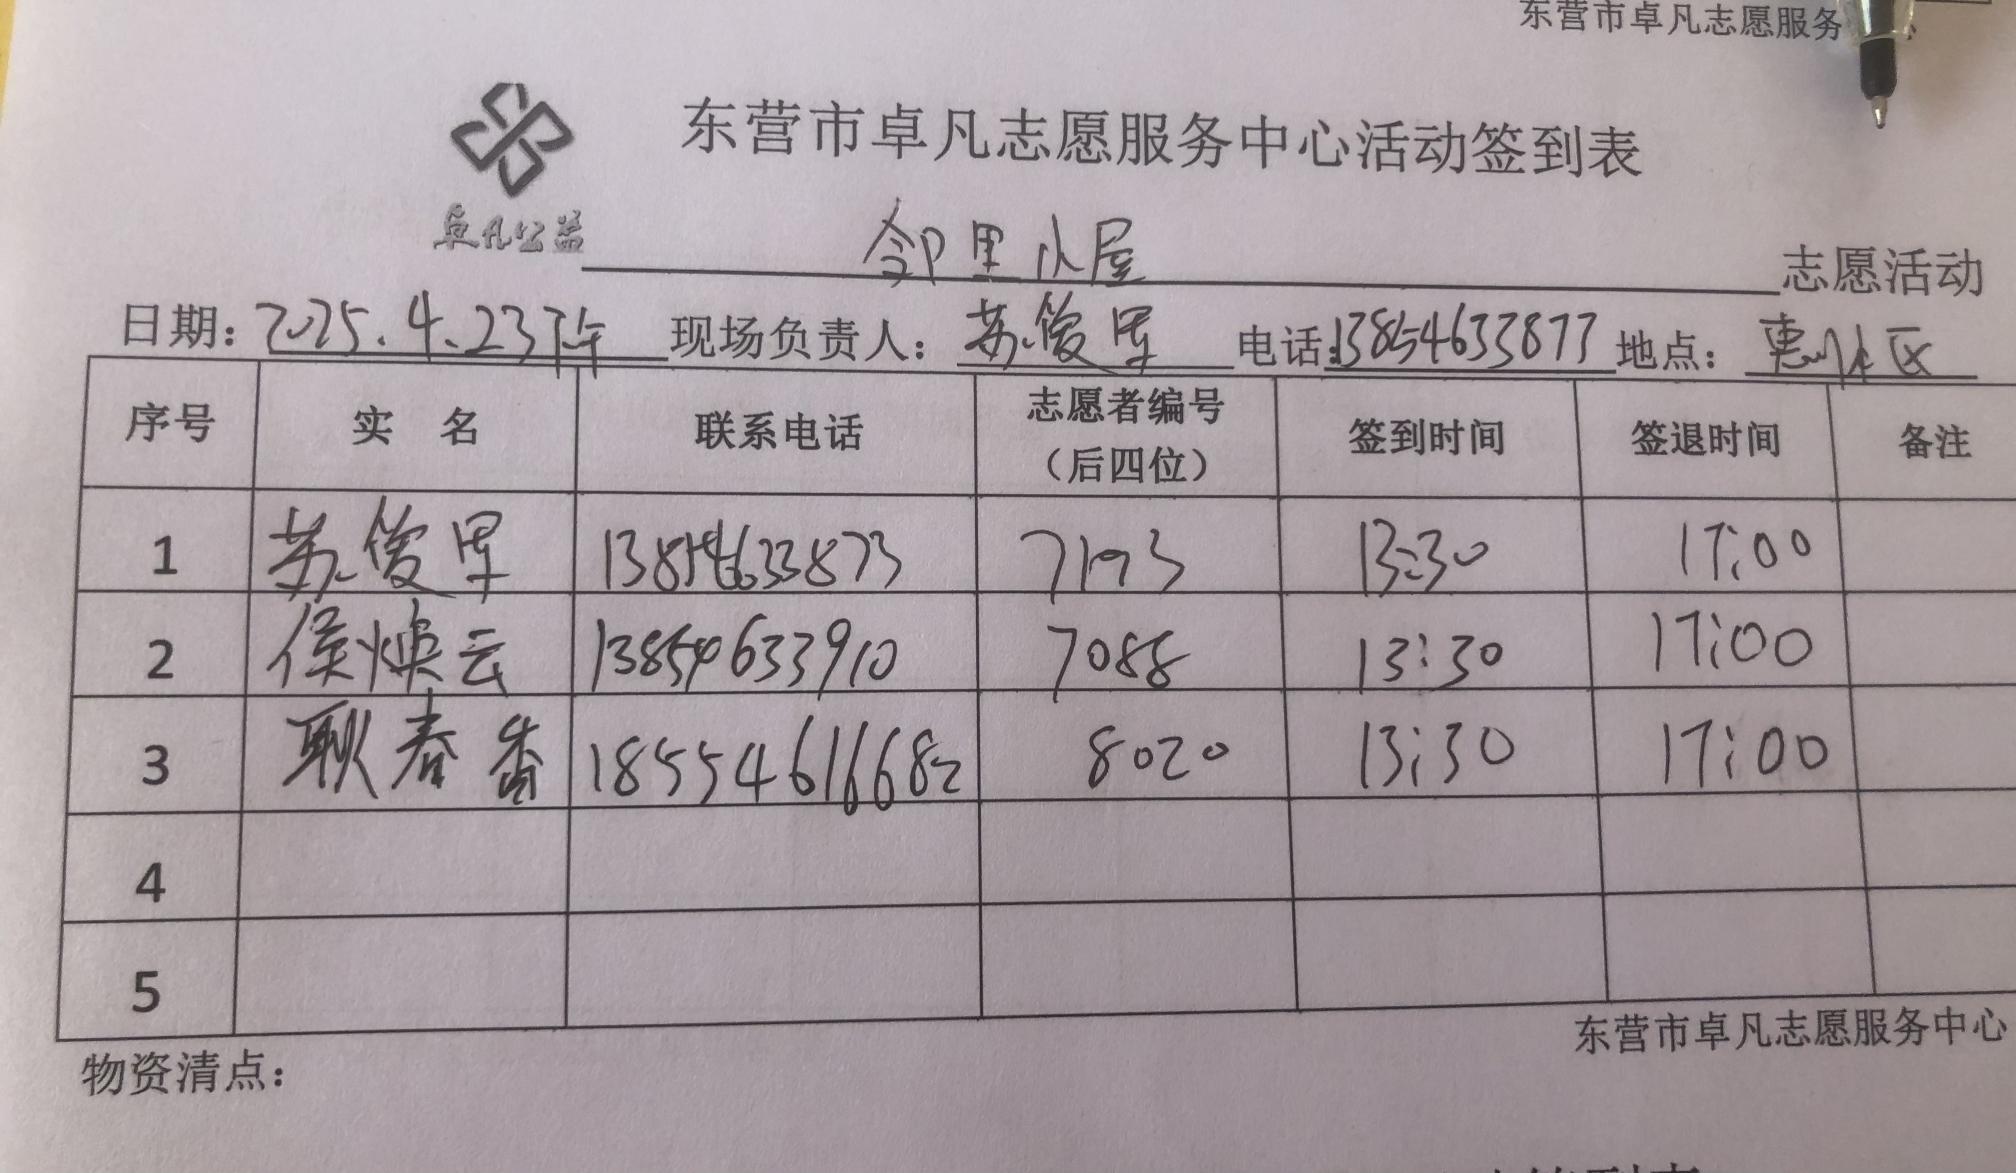 东营市卓凡志愿服务
东营市卓凡志愿服务中心活动签到表
卓凡公益
邻里小屋 志愿活动
日期：2025.4.23下午 现场负责人：苏俊军 电话：13854633873 地点：惠州社区
序号 实 名 联系电话 志愿者编号（后四位） 签到时间 签退时间 备注
1 苏俊军 13854633873 7193 13:30 17:00
2 侯焕云 13854633910 7088 13:30 17:00
3 耿春香 18554616682 8020 13:30 17:00
4
5
东营市卓凡志愿服务中心
物资清点：